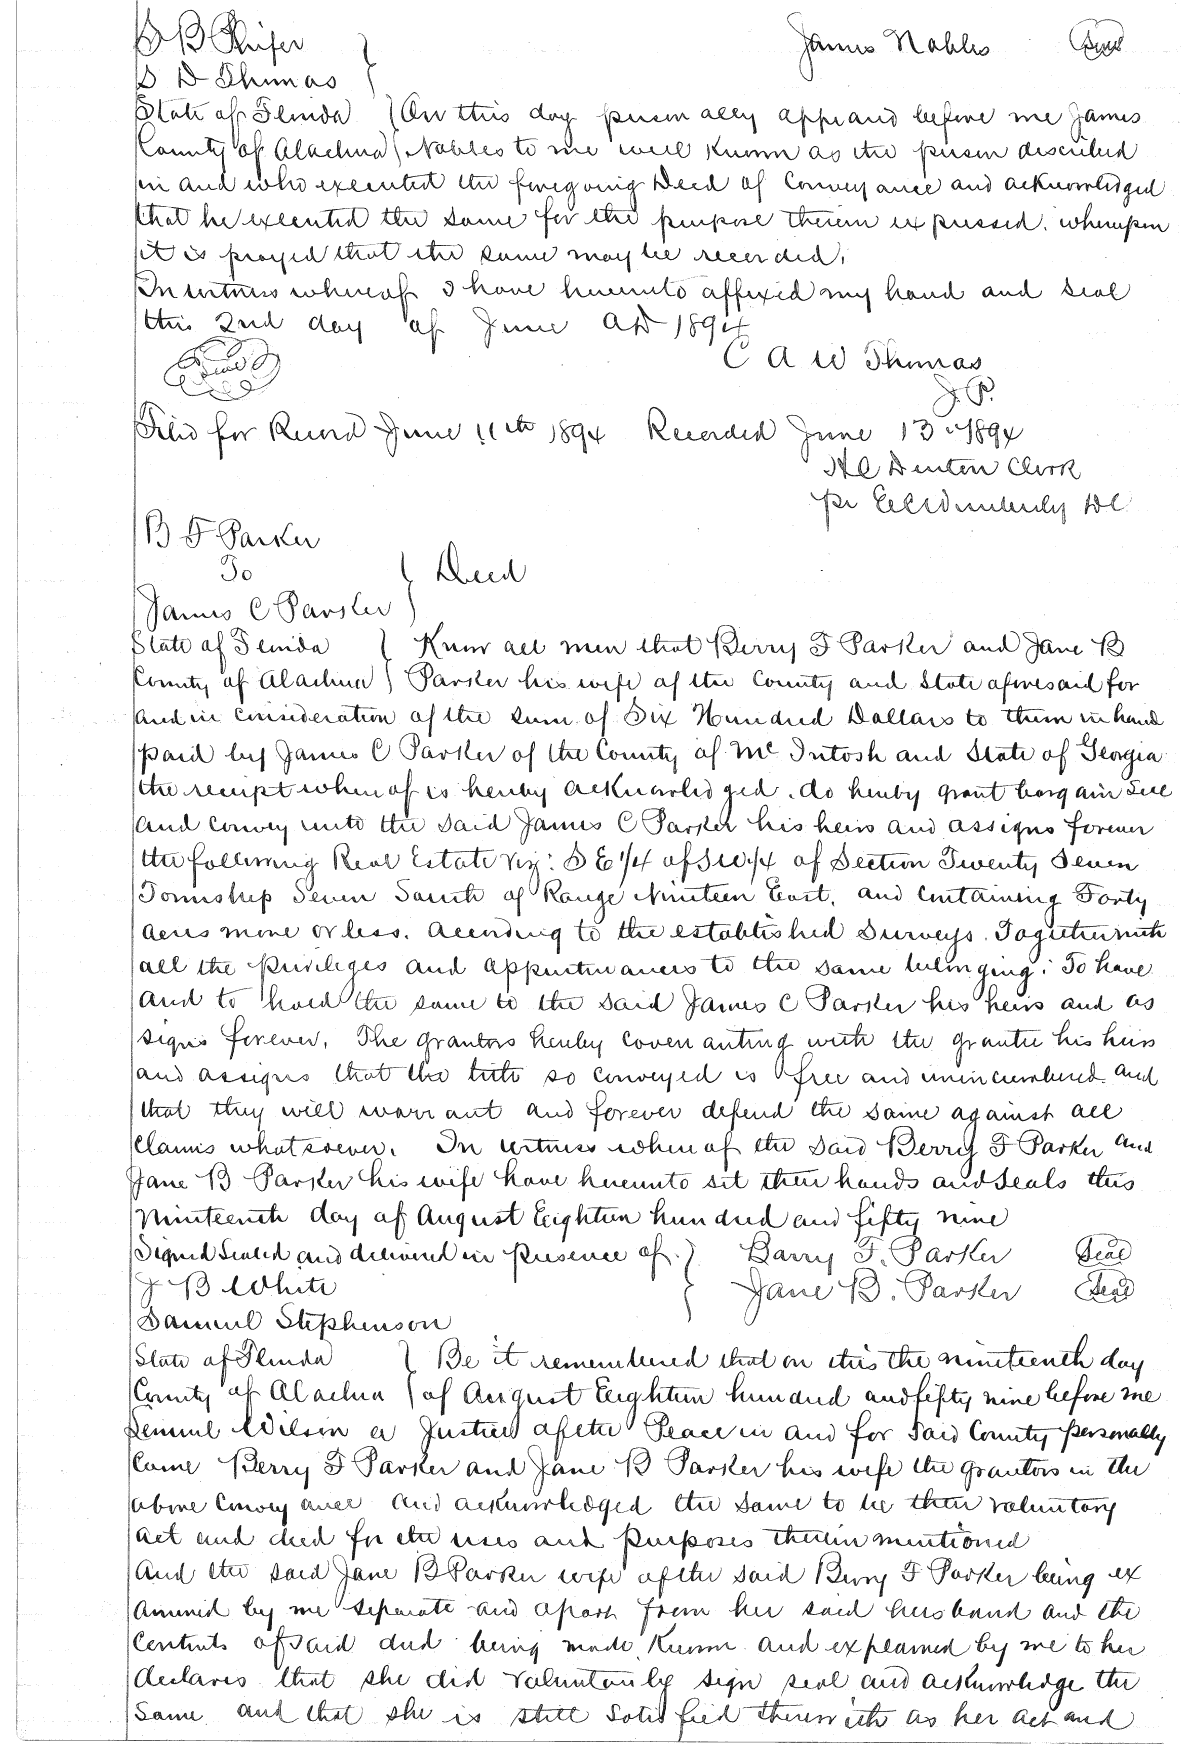 B B Phifer } James Nobles Seal
S D Thomas
State of Florida } On this day personally appeared before me James
County of Alachua } Nobles to me well known as the person described
in and who executed the foregoing Deed of Conveyance and acknowledged
that he executed the same for the purpose therein expressed. whereupon
it is prayed that the same may be recorded.
In witness whereof I have hereunto affixed my hand and seal
this 2nd day of June AD 1894
Seal C A W Thomas
J. P.
Filed for Record June 11th 1894 Recorded June 13" 1894
H C Denton Clerk
pr Wimberly DC
B F Parker
To } Deed
James C Parker
State of Florida } Know all men that Berry F Parker and Jane B
County of Alachua } Parker his wife of the County and State aforesaid for
and in consideration of the sum of Six Hundred Dollars to them in hand
paid by James C Parker of the County of Mc Intosh and State of Georgia
the receipt whereof is hereby acknowledged. do hereby grant bargain sell
and convey unto the said James C Parker his heirs and assigns forever
the following Real Estate viz: S E 1/4 of S W 1/4 of Section Twenty Seven
Township Seven South of Range Nineteen East, and containing Forty
acres more or less. according to the established Surveys. Together with
all the privileges and appurtenances to the same belonging: To have
and to hold the same to the said James C Parker his heirs and as
signs forever. The grantors hereby covenanting with the grantee his heirs
and assigns that the title so conveyed is free and unincumbered and
that they will warrant and forever defend the same against all
claims whatsoever. In witness whereof the said Berry F Parker and
Jane B Parker his wife have hereunto set their hands and seals this
Nineteenth day of August Eighteen hundred and fifty nine
Signed Sealed and delivered in presence of } Barry F. Parker Seal
J B White } Jane B. Parker Seal
Samuel Stephenson
State of Florida } Be it remembered that on this the nineteenth day
County of Alachua } of August Eighteen hundred and fifty nine before me
Lemuel Wilson a Justice of the Peace in and for Said County personally
Came Berry F Parker and Jane B Parker his wife the grantors in the
above Conveyance and acknowledged the same to be their voluntary
act and deed for the uses and purposes therein mentioned
And the said Jane B Parker wife of the said Berry F Parker being ex
amined by me separate and apart from her said husband and the
Contents of said deed being made Known and explained by me to her
declares that she did voluntarily sign seal and acknowledge the
Same and that she is still Satisfied therewith as her act and